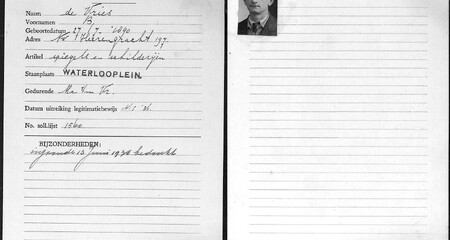 Naam de Vries
Voornamen B.
Geboortedatum 27/7 - 1890
Adres Heerengracht 197
Artikel spiegels en schilderijen
Staanplaats WATERLOOPLEIN.
Gedurende Ma t/m Vr.
Datum uitreiking legitimatiebewijs
No. soll.lijst 1560
BIJZONDERHEDEN:
ingaande 13 Juni 1938 bedankt